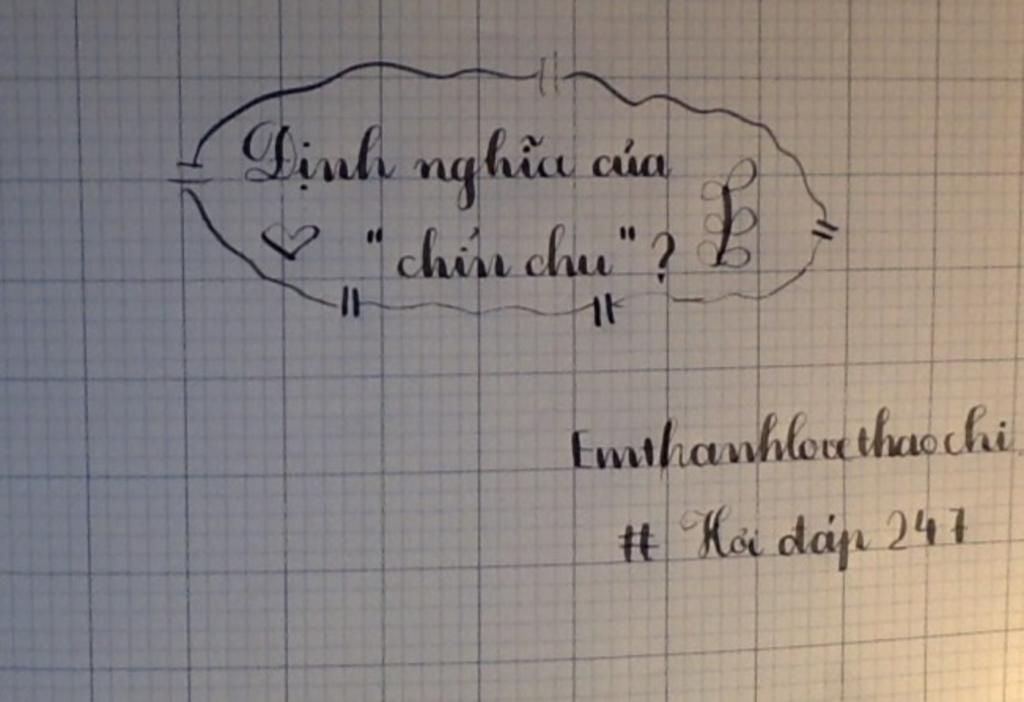 Định nghĩa của
"chỉn chu"?
Emthanhlovethaochi
# Hỏi đáp 247